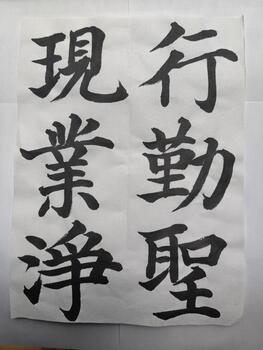 行勤聖
現業淨